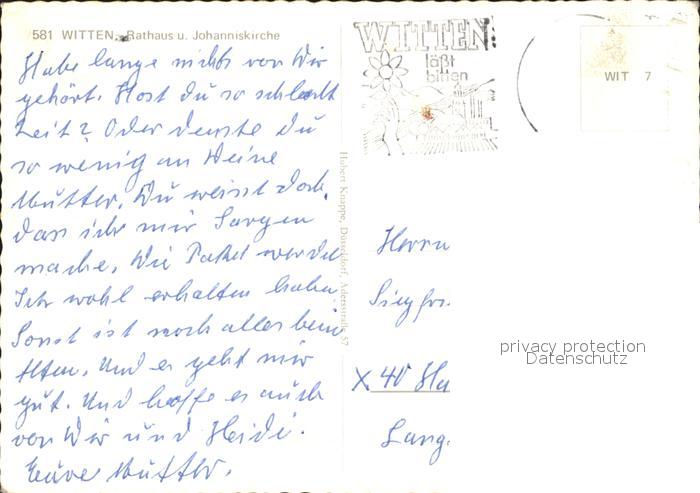 581 WITTEN, Rathaus u. Johanniskirche
Habe lange nichts von Dir
gehört. Hast du so schlecht
Zeit? Oder denkst du
so wenig an Deine
Mutter. Du weisst doch,
dass ich mir Sorgen
mache. Die Paket werdet
Ihr wohl erhalten haben.
Sonst ist noch alles beim
Alten. Und es geht mir
gut. Und hoffe es auch
von Dir und Heidi.
Eure Mutter.
Hubert Knappe, Düsseldorf, Adersstraße 57
WITTEN
läßt
bitten
WIT 7
Herrn
Siegfr
X 40 Ha
Lang
privacy protection
Datenschutz